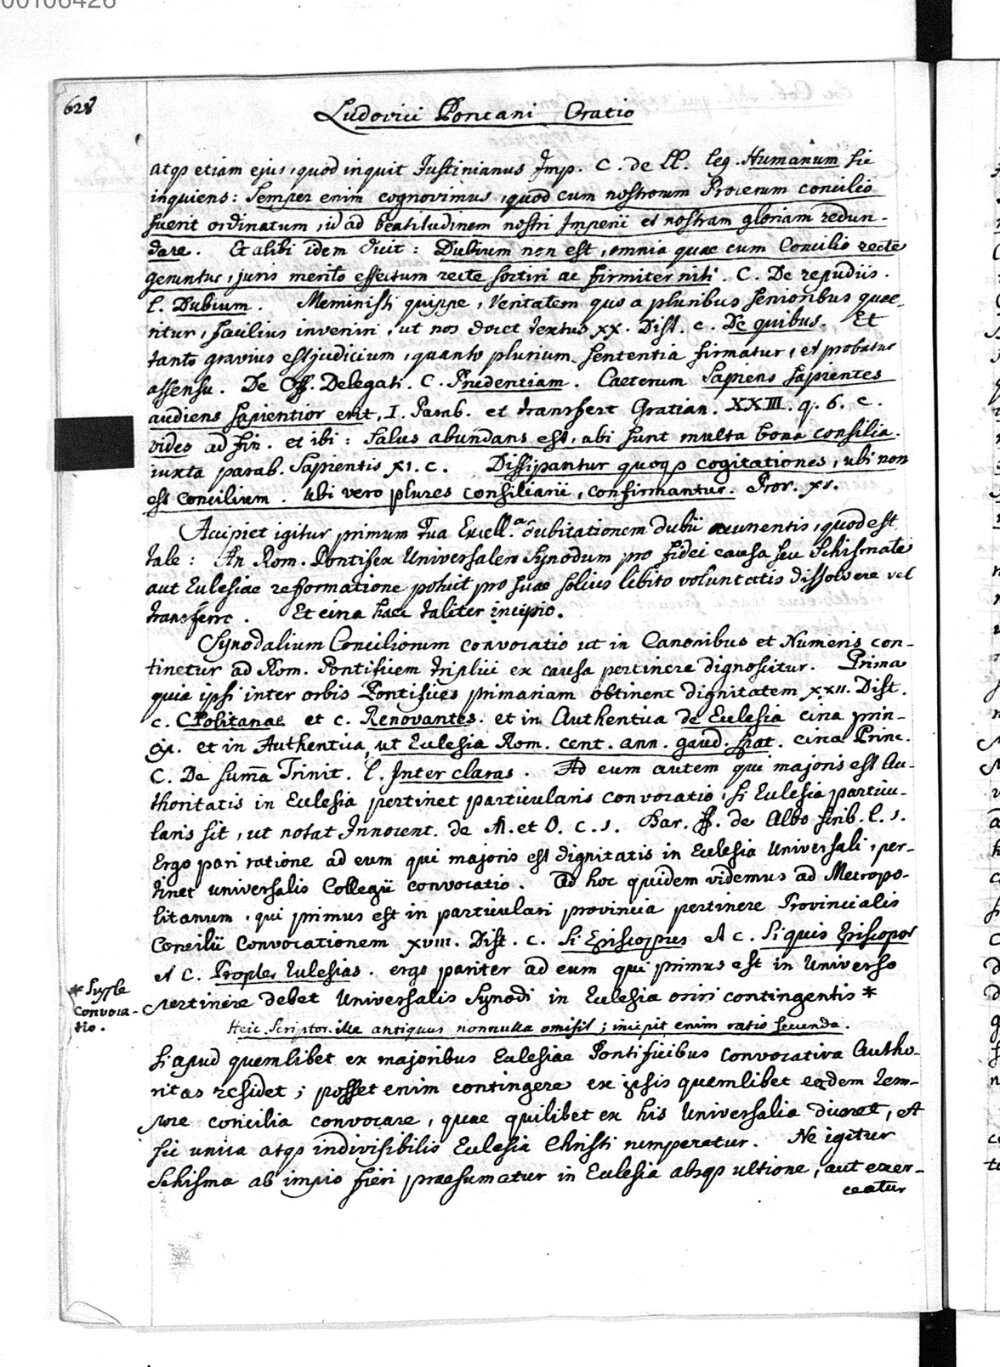 00106426
628
Ludovici Pontani Oratio
atqȝ etiam ejus, quod inquit Justinianus Imp. C. de LL. leg. Humanum sic
inquiens: Semper enim cognovimus, quod cum nostrorum Procerum concilio
fuerit ordinatum, id ad beatitudinem nostri Imperii et nostram gloriam redun-
dare. Et alibi idem dicit: Dubium non est, omnia quae cum Concilio recte
geruntur, juris merito effectum recte sortiri ac firmiter niti. C. De repudiis.
l. Dubium. Meministi quippe, Veritatem quo a pluribus senioribus quae-
ritur, facilius inveniri, ut nos docet textus XX. Dist. c. De quibus. Et
tanto gravius est judicium, quanto plurium sententia firmatur, et probatur
assensu. De Off. Delegati. C. Prudentiam. Caeterum Sapiens sapientes
audiens sapientior erit, I. Parab. et transfert Gratian. XXIII. q. 6. c.
video ad fin. et ibi: Salus abundans est, ubi sunt multa bona consilia.
iuxta parab. Sapientis XI. c. Dissipantur quoqȝ cogitationes, ubi non
est concilium. Ubi vero plures consiliarii, confirmantur. Prov. XV.
Accipiet igitur primum Tua Excell.a dubitationem dubii currentis, quod est
tale: An Rom. Pontifex Universalem Synodum pro fidei causa seu Schismate
aut Eclesiae reformatione potuit pro suae solius libito voluntatis dissolvere vel
transferre. Et circa haec taliter incipio.
Synodalium Conciliorum convocatio ut in Canonibus et Numeris con-
tinetur ad Rom. Pontificem triplici ex causa pertinere dignoscitur. Prima
quia ipsi inter orbis Pontifices primariam obtinent dignitatem XXII. Dist.
c. CPolitanae et c. Renovantes. et in Authentica de Eclesia circa prin-
cip. et in Authentica, ut Eclesia Rom. cent. ann. gaud. fiat. circa Princ.
C. De Summa Trinit. l. Inter claras. Ad eum autem qui majoris est Au-
thoritatis in Eclesia pertinet particularis convocatio, si Eclesia particu-
laris sit, ut notat Innocent. de M. et O. c. 1. Bar. ff. de Albo scrib. l. 1.
Ergo pari ratione ad eum qui majoris est dignitatis in Eclesia Universali, per-
tinet universalis Collegii convocatio. Ad hoc quidem videmus ad Metropo-
litanum, qui primus est in particulari provincia pertinere Provincialis
Concilii Convocationem XVIII. Dist. c. Si Episcopus et c. Si quis Episcopor
et c. Propter Eclesias. ergo pariter ad eum qui primus est in Universo
pertinere debet Universalis Synodi in Eclesia oriri contingentis *
* Supple
Convoca-
tio.
Heic Scriptor ille antiquus nonnulla omisit; incipit enim ratio secunda.
si apud quemlibet ex majoribus Eclesiae Pontificibus convocativa Autho-
ritas residet; posset enim contingere ex ipsis quemlibet eodem tem-
pore concilia convocare, quae quilibet ex his Universalia diceret, et
sic unica atqȝ indivisibilis Eclesia Christi rumperetur. Ne igitur
Schisma ab impio fieri praesumatur in Eclesia absqȝ ultione, aut exer-
ceatur